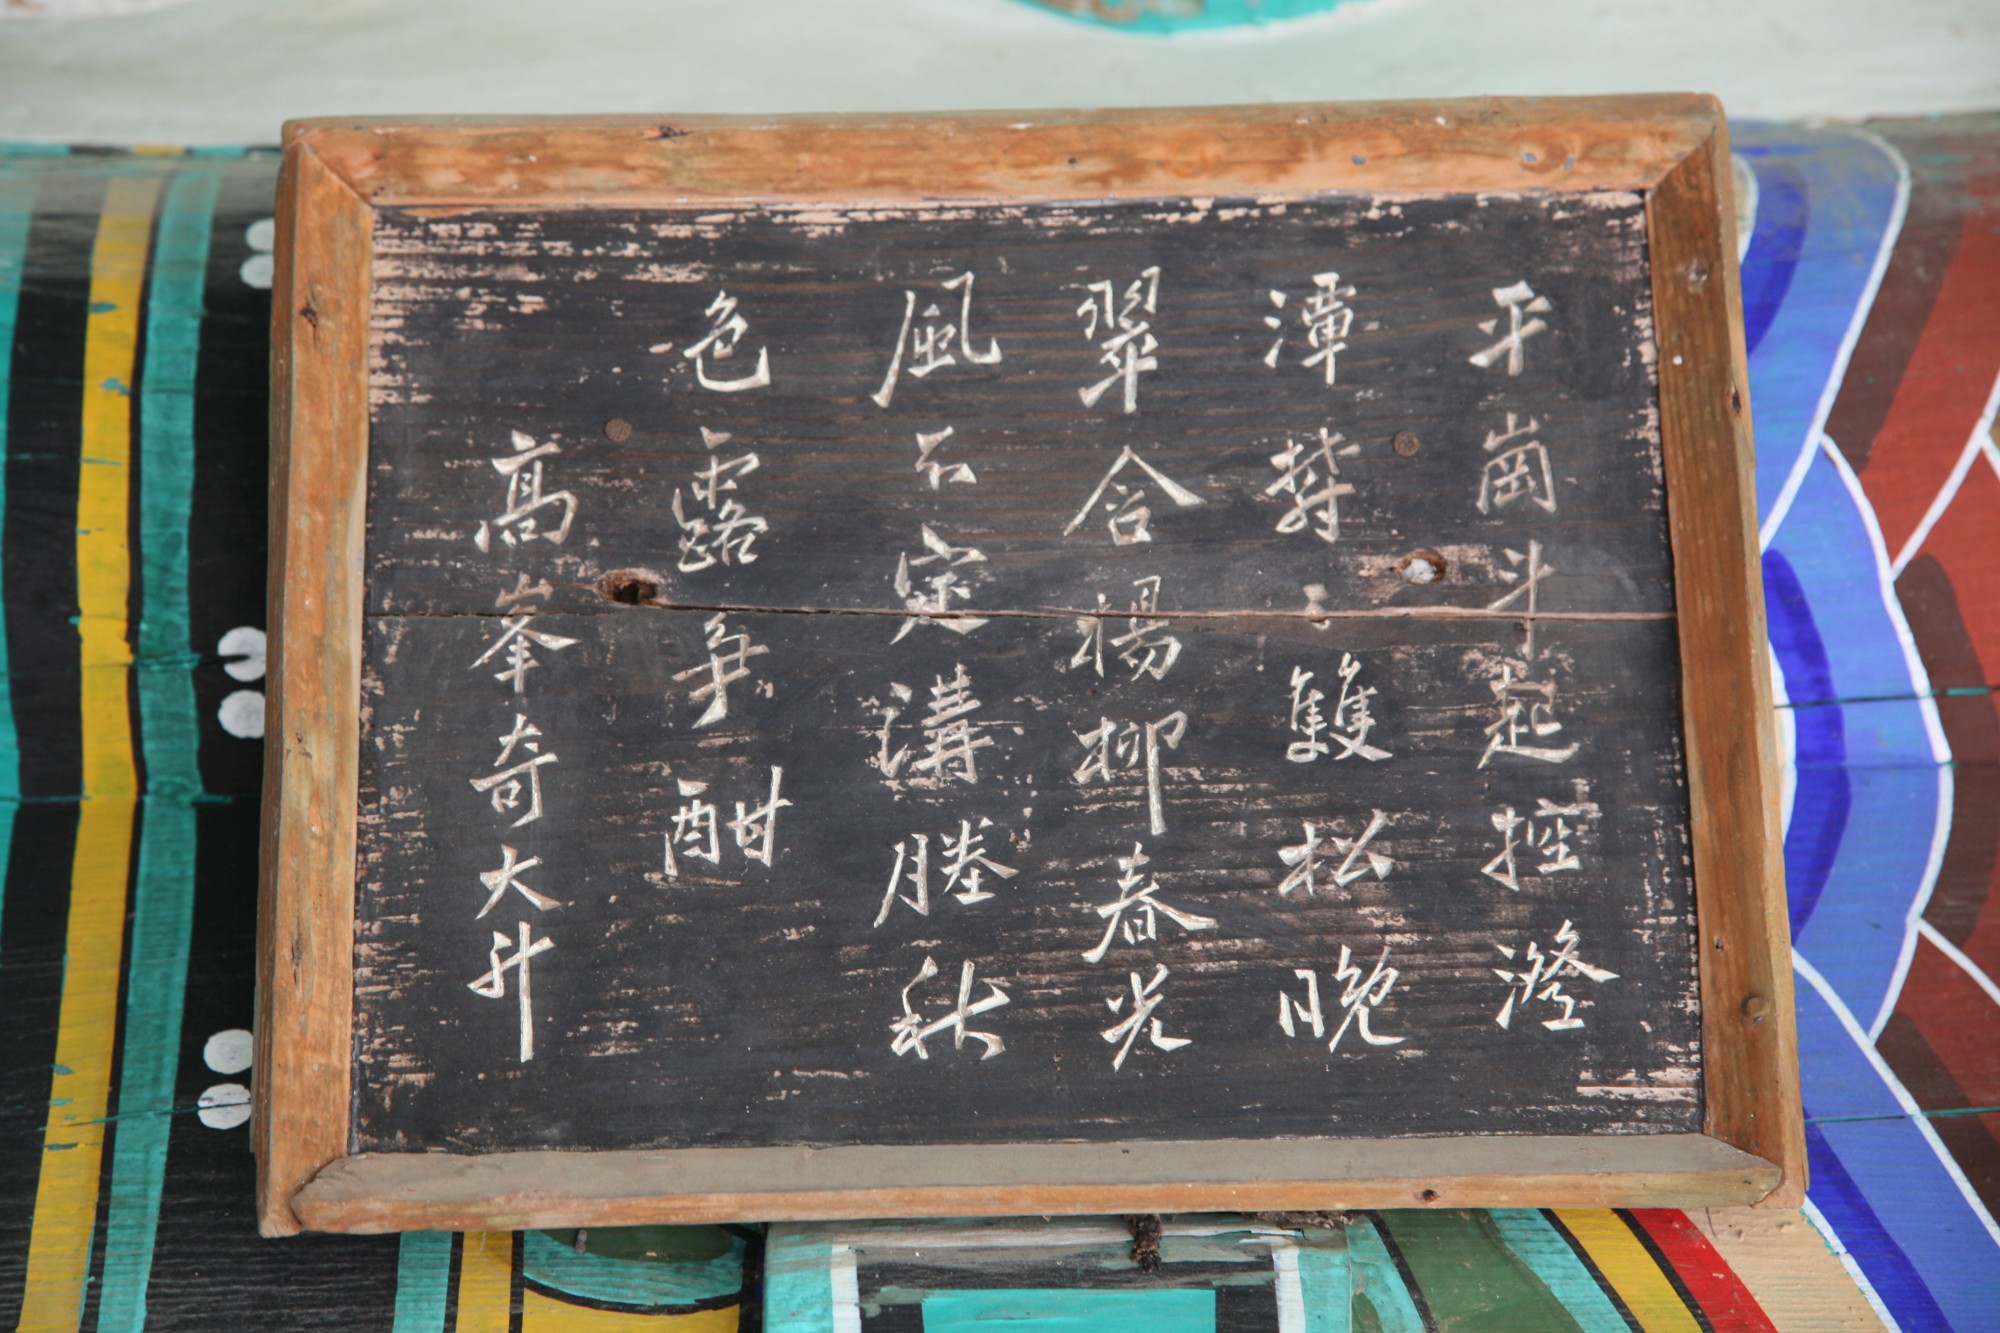 平崗斗起控澄
潭欝々雙松晩
翠含楊柳春光
風不定溝塍秋
色露爭酣
高峯奇大升